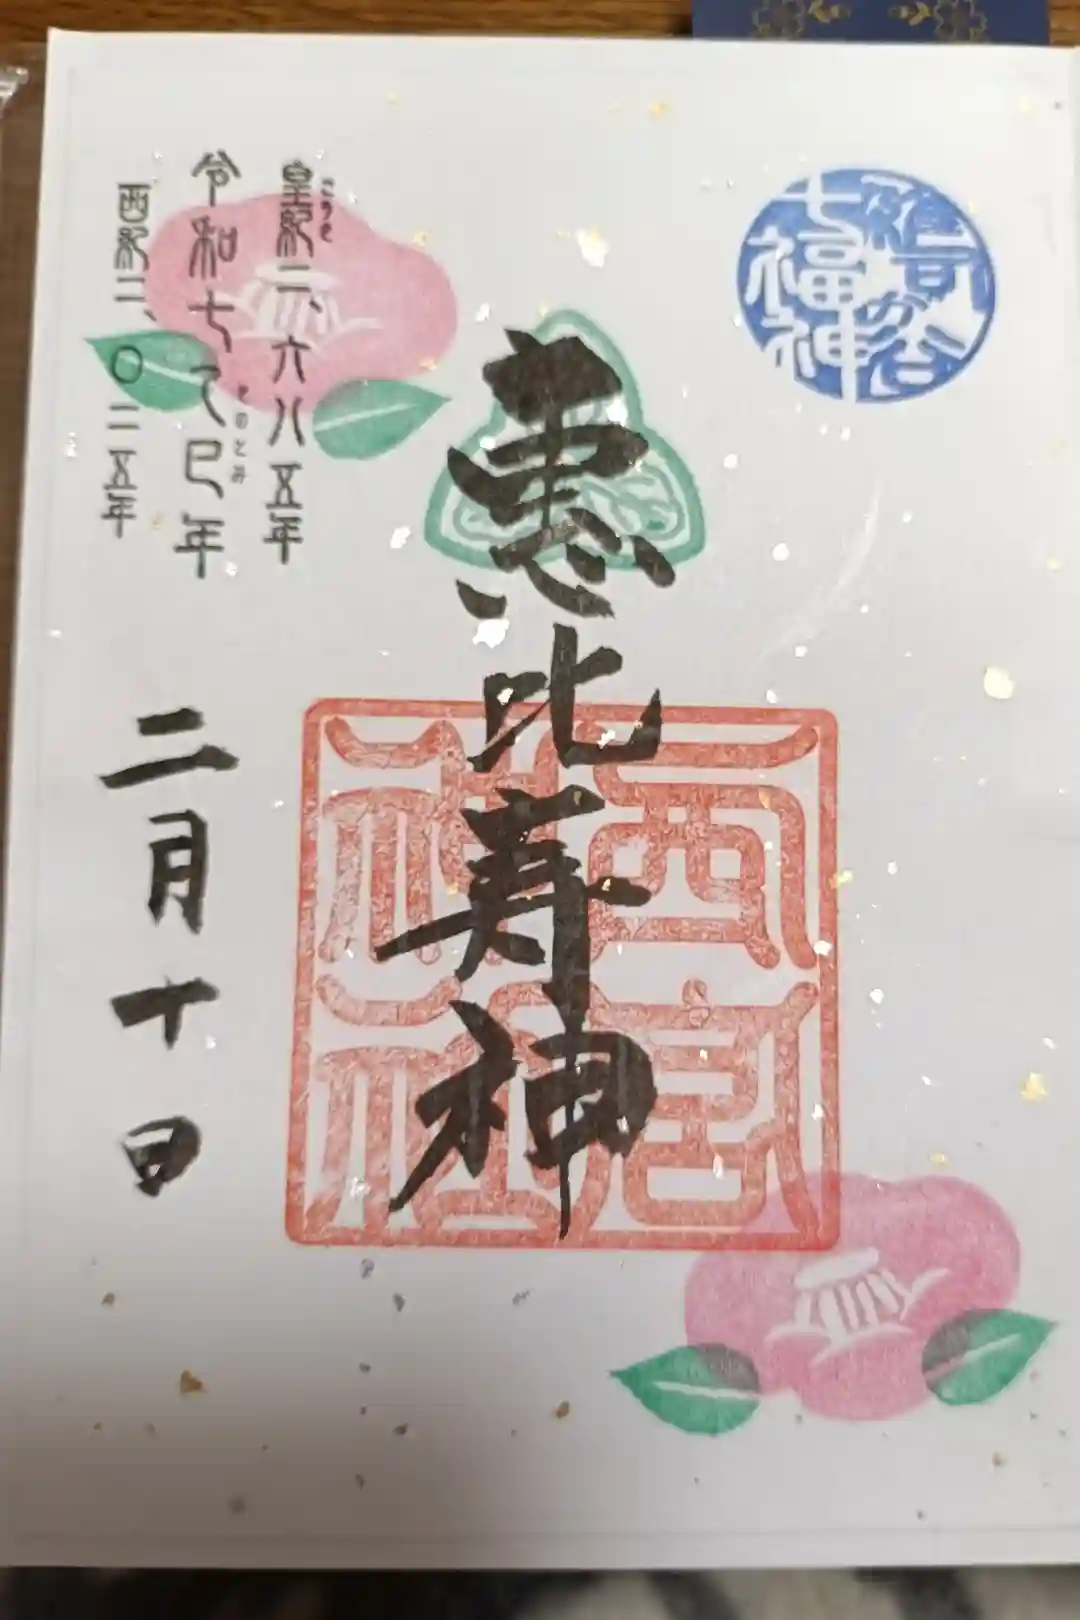 雑司が谷
七福神
恵比寿神
西宮
神社
皇紀二、六八五年
こうき
令和七乙巳年
きのとみ
西紀二、〇二五年
二月十日